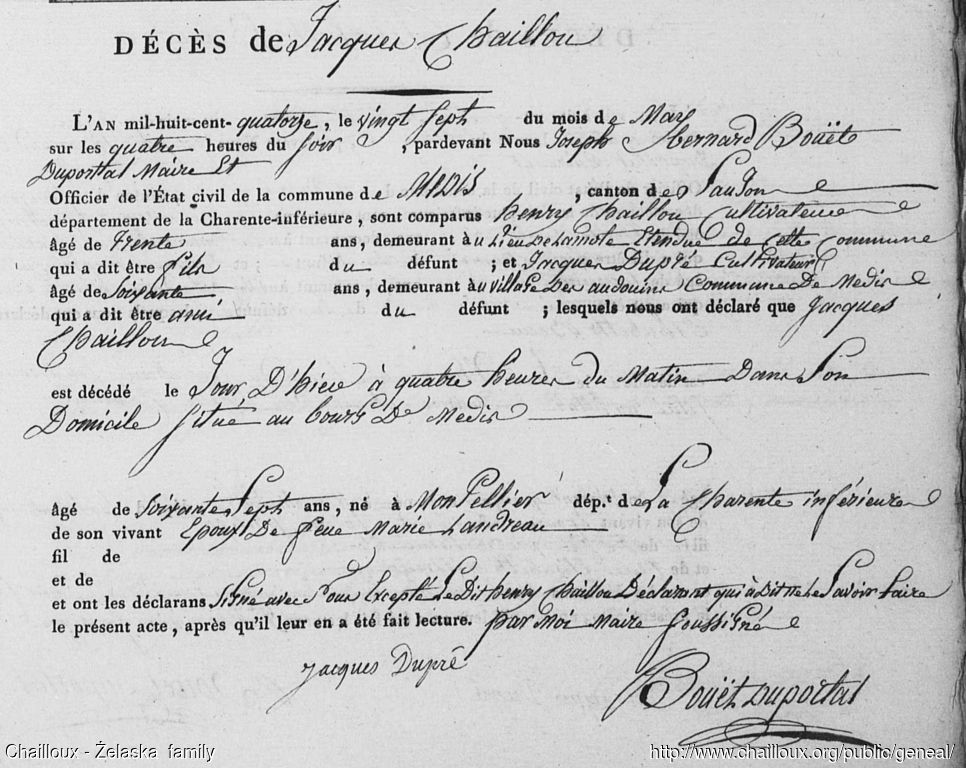 DÉCÈS de Jacques Chaillou
L'AN mil-huit-cent- quatorze, le vingt sept du mois de May
sur les quatre heures du soir, pardevant Nous Joseph Bernard Bouët
Duportal Maire Et
Officier de l'État civil de la commune de MEDIS, canton de Saujon
département de la Charente-inférieure, sont comparus henry Chaillou Cultivateur
âgé de Trente ans, demeurant àu lieu De Lamote Etendue de Cette Commune
qui a dit être fils du défunt ; et Jacques Dupré Cultivateur
âgé de Soixante ans, demeurant àu village Des audouins Commune De Medis
qui a dit être ami du défunt ; lesquels nous ont déclaré que Jacques
Chaillou
est décédé le Jour D'hier à quatre heures du Matin Dans Son
Domicile situe au bourg De Medis
âgé de Soixante Sept ans, né à MonPellier dép.t de La Charente inférieure
de son vivant Epoux De feue Marie Landreau
fil de
et de
et ont les déclarans Signé avec Nous Excepté Le Dit henry Chaillou Déclarant qui à Dit ne Le Savoir faire
le présent acte, après qu'il leur en a été fait lecture. par Moi Maire soussigné
Jacques Dupré
Bouët Duportal
Chailloux - Želaska family http://www.chailloux.org/public/geneal/